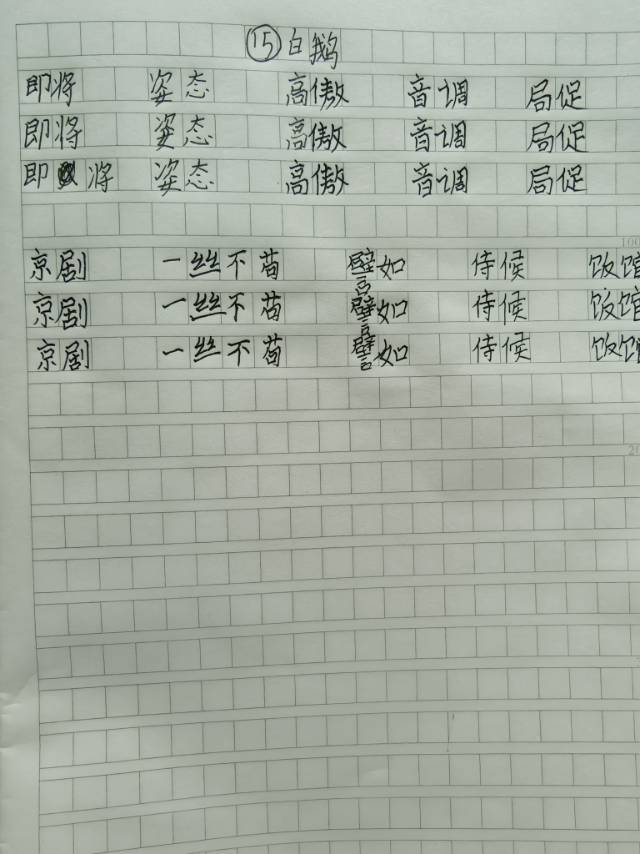 ⑮白鹅
即将 姿态 高傲 音调 局促
即将 姿态 高傲 音调 局促
即将 姿态 高傲 音调 局促
京剧 一丝不苟 譬如 侍候 饭馆
京剧 一丝不苟 譬如 侍候 饭馆
京剧 一丝不苟 譬如 侍候 饭馆